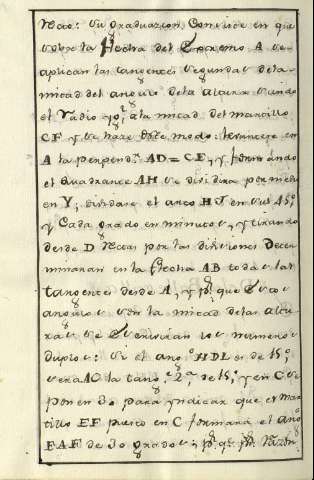 recto: su graduazion consiste en que
sobre la flecha del extremo A se
aplican las tangentes segundas de la
mitad del angulo de la altura siendo
el Radio igual a la mitad del martillo
CF y se haze deste modo: levantese en
A la perpend.r AD = CE, y formando
el quadrante AH se dividira por medio
en Y, dividase el arco HI en sus 45°
y Cada grado en minutos, y tirando
desde D rectas por las divisiones deter
minaran en la flecha AB todas las
tangentes desde A, y pr. que estos
angulos son la mitad de las altu
ras se escriviran los numeros
duplos: Si el ang.o HDL es de 15°
sera AC la tang.e 2.a de 15° y en C se
ponen 30 para yndicar que el mar
tillo EF puesto en C formara el ang.o
EAF de 30 grados; pr. q.e